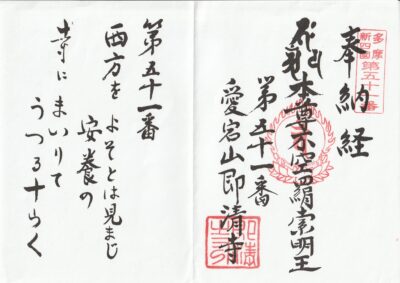 多摩
新四國第五十一番
奉納経
本尊不空羂索明王
第五十一番
愛宕山即清寺
第五十一番
西方を
よそとは見まじ
安養の
寺にまいりて
うつる十らく